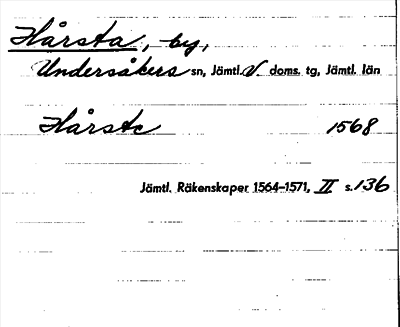 Hårsta, by,
Undersåkers sn, Jämtl. V. doms. tg, Jämtl. län
Hårstc 1568
Jämtl. Räkenskaper 1564-1571, II s. 136